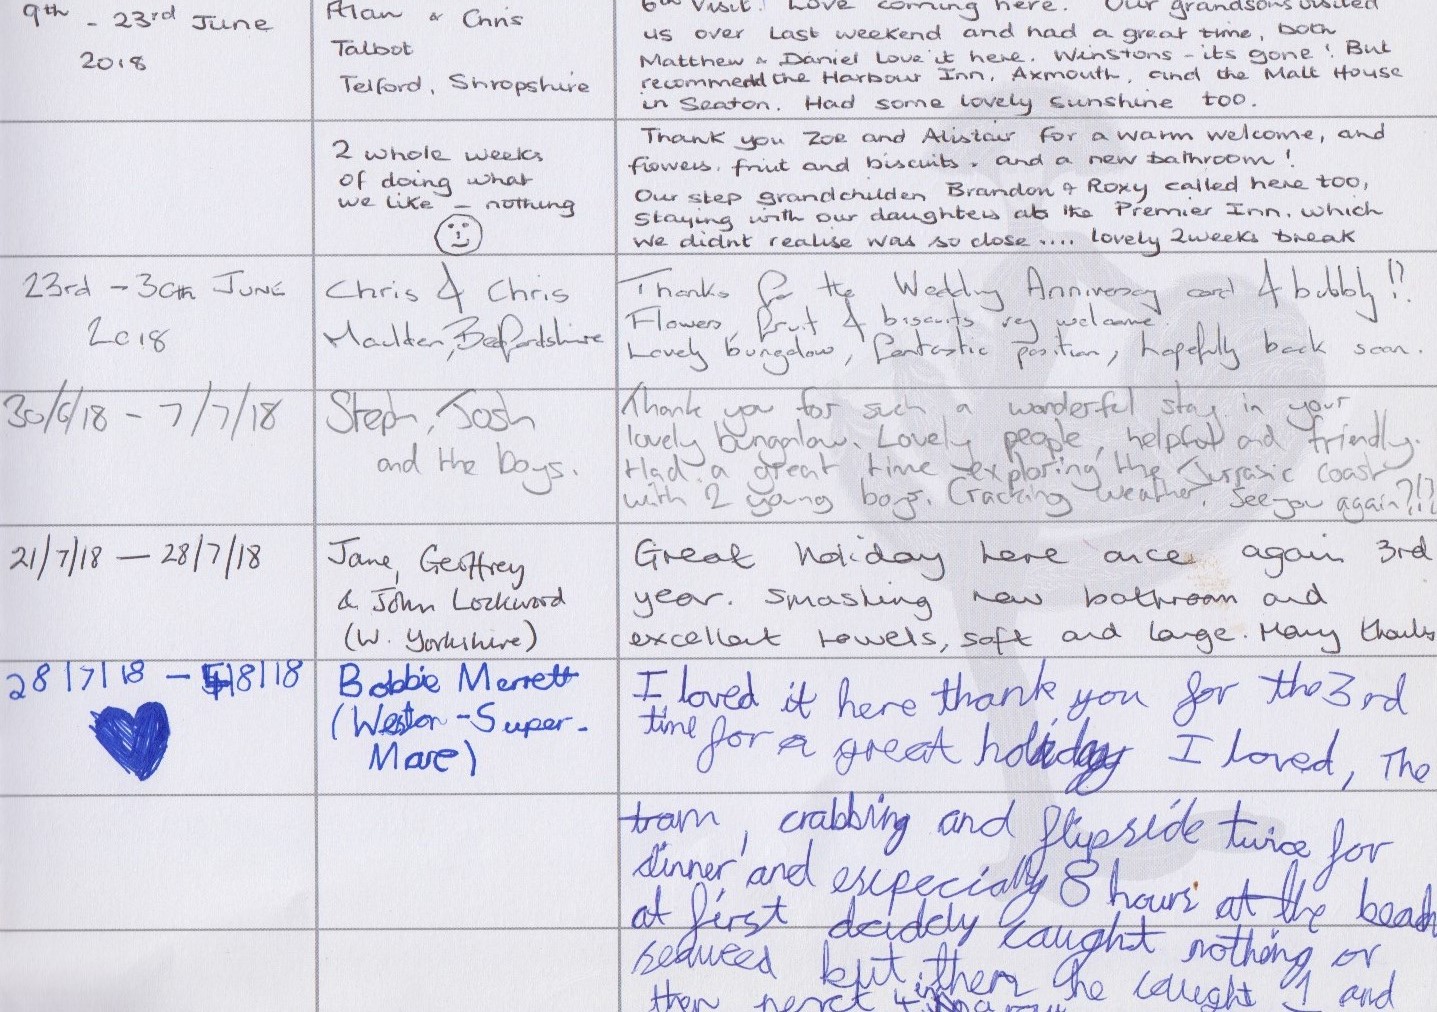 9th - 23rd June
2018
Alan & Chris
Talbot
Telford, Shropshire
6th visit! Love coming here. Our grandsons visited
us over last weekend and had a great time, both
Matthew & Daniel love it here. Winstons - its gone! But
recommend the Harbour Inn, Axmouth, and the Malt House
in Seaton. Had some lovely sunshine too.
2 whole weeks
of doing what
we like - nothing
Thank you Zoe and Alistair for a warm welcome, and
flowers, friut and biscuits. and a new bathroom!
Our step grandchilden Brandon & Roxy called here too,
staying with our daughters at the Premier Inn. which
we didnt realise was so close .... lovely 2 weeks break
23rd - 30th June
2018
Chris & Chris
Maulden, Bedfordshire
Thanks for the Wedding Anniversary card & bubbly!?
Flowers, fruit & biscuits very welcome.
Lovely bungalow, fantastic position, hopefully back soon.
30/6/18 - 7/7/18
Steph, Josh
and the boys.
Thank you for such a wonderful stay in your
lovely bungalow. Lovely people, helpful and friendly.
Had a great time exploring the Jurrasic coast
with 2 young boys. Cracking weather. See you again?!?
21/7/18 — 28/7/18
Jane, Geoffrey
& John Lockwood
(W. Yorkshire)
Great holiday here once again 3rd
year. Smashing new bathroom and
excellent towels, soft and large. Many thanks
28/7/18 - 4/8/18
Bobbie Merrett
(Weston-Super-
Mare)
I loved it here thank you for the 3rd
time for a great holiday I loved, The
tram, crabbing and flipside twice for
dinner and escpecialy 8 hours at the beach
at first daddy caught nothing or
seaweed but then he caught 1 and
then next 4 in a row